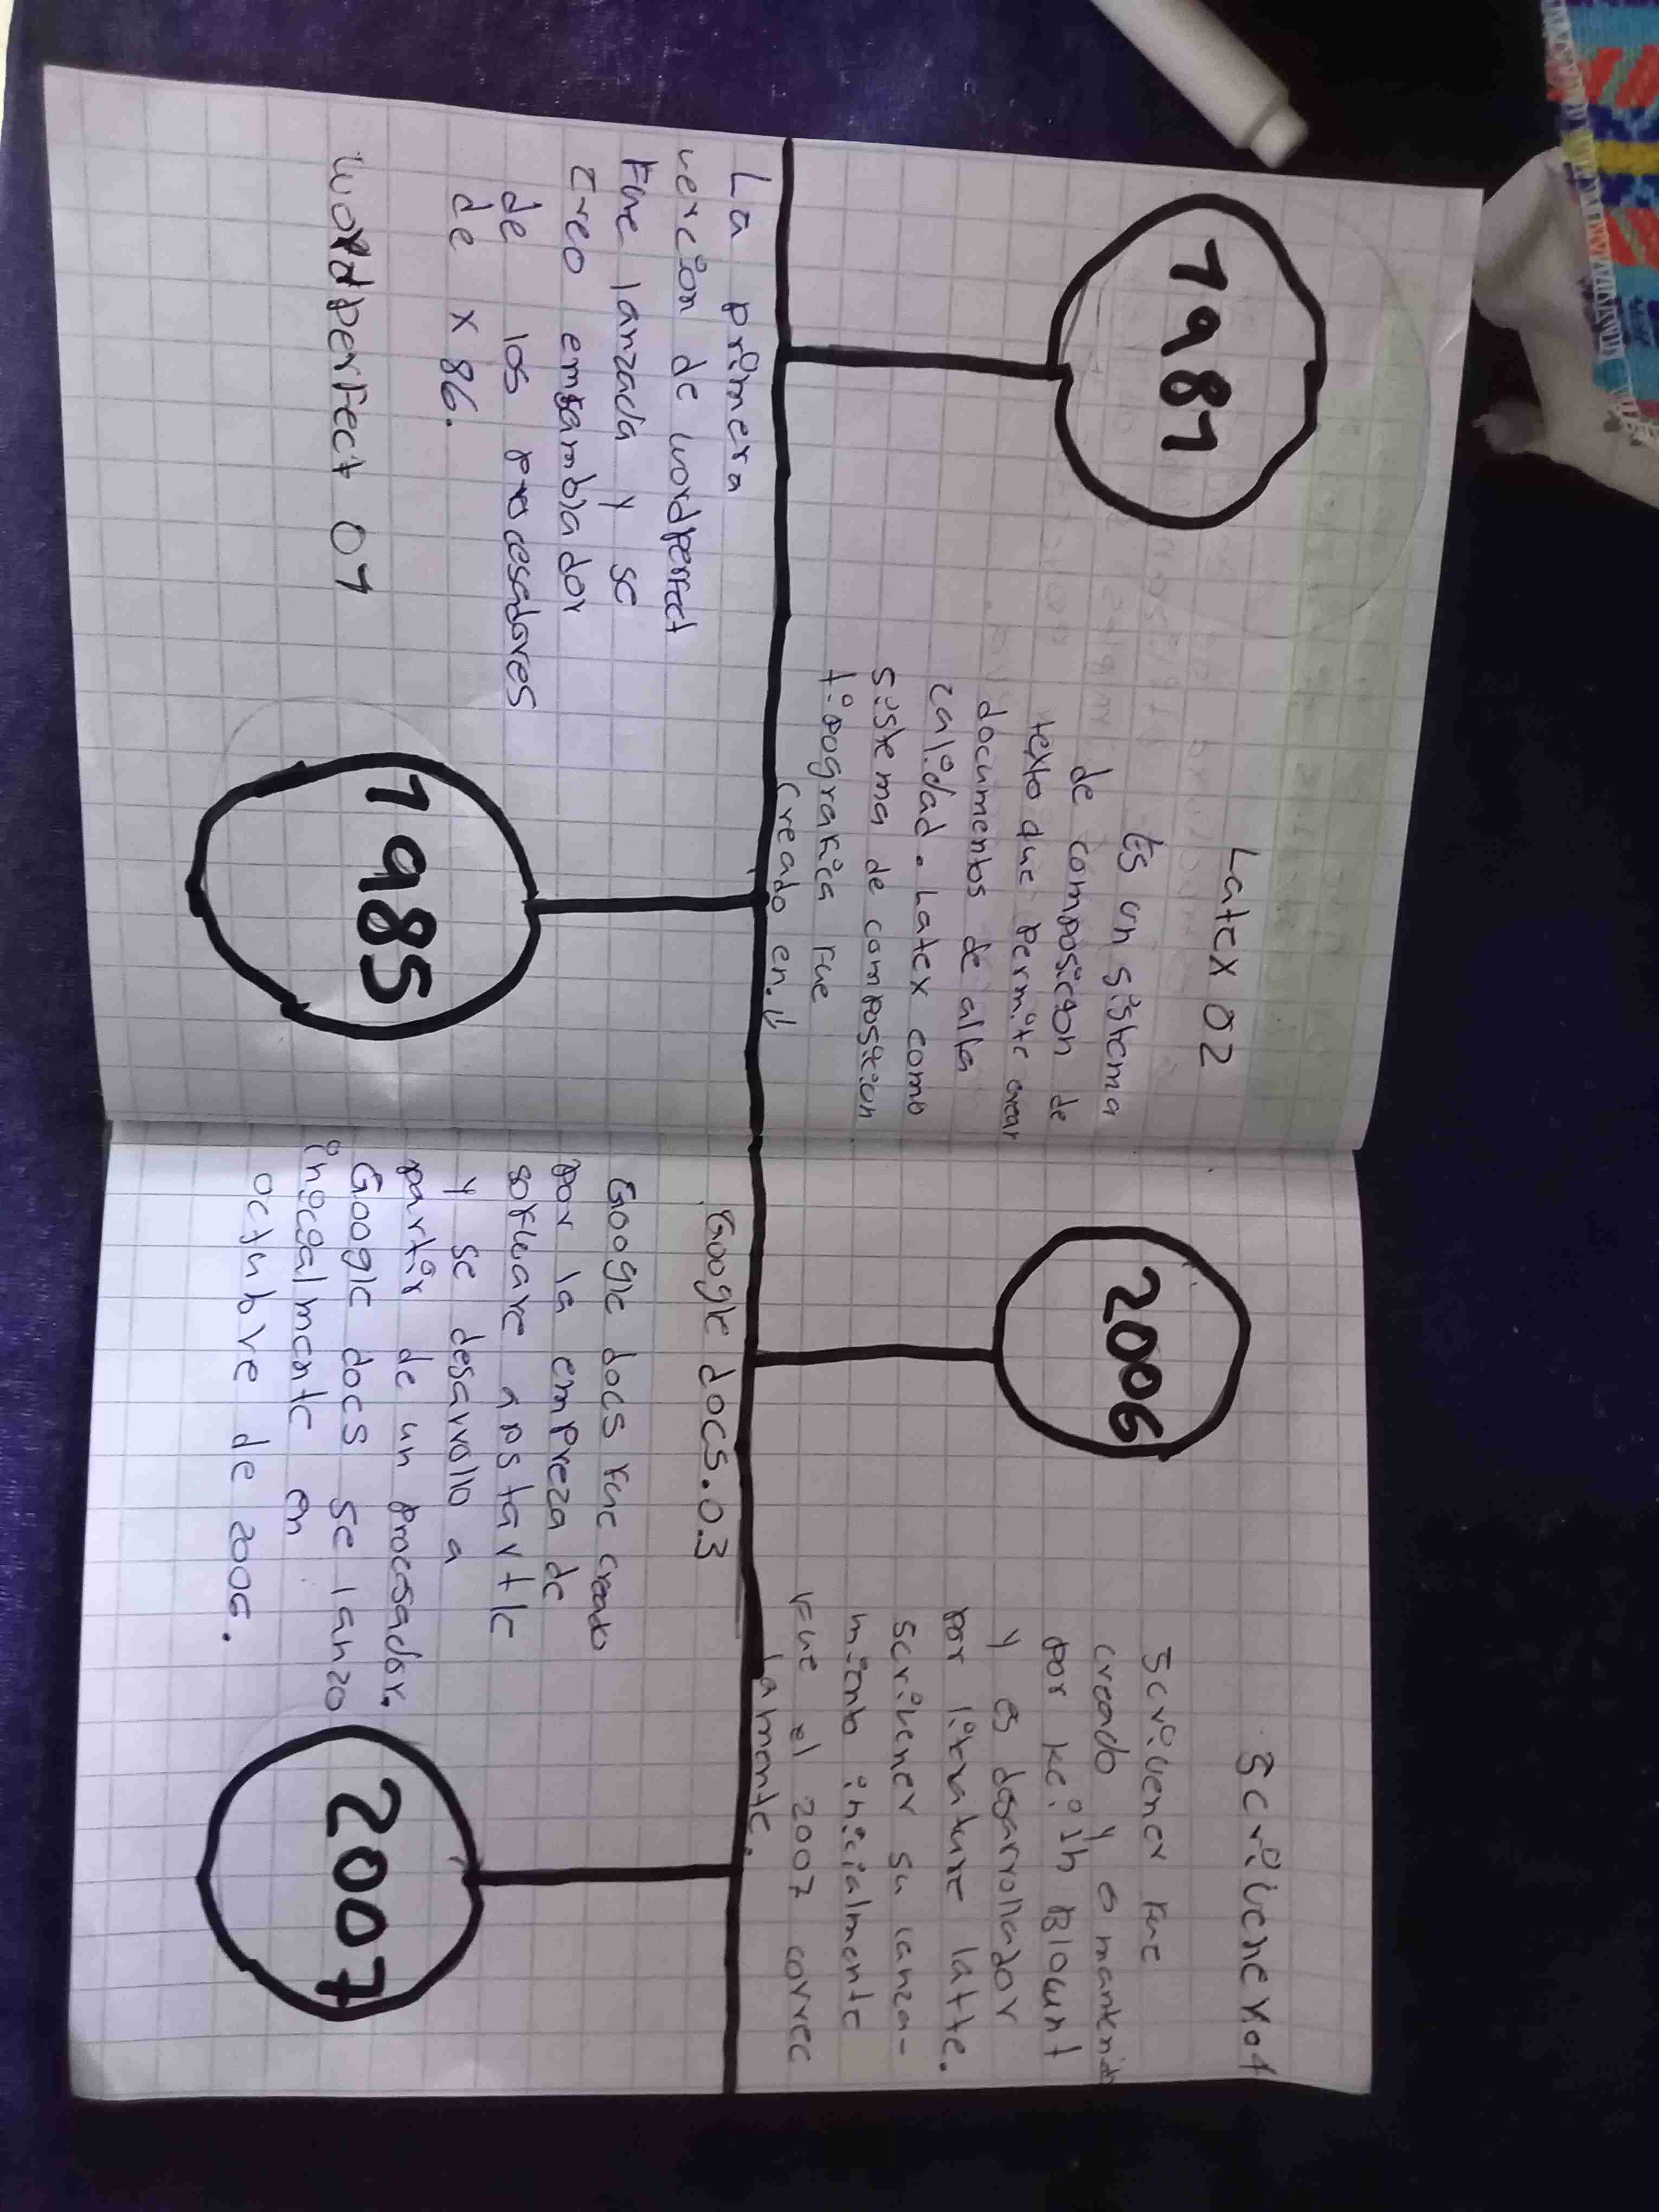 1981
La primera
verción de wordperfect
Fue lanzada y se
creo emsamblador
de los procesadores
de x 86.
wordperfect 01
Latex 02
Es un sistema
de composicion de
texto que permite crear
documentos de alta
calidad. Latex como
sistema de composition
tipografica fue
creado en.↓
1985
2006
Google docs.03
Google docs fue creado
por la empreza de
software apstartle
y se desarrollo a
partir de un procesador.
Google docs se lanzo
inicialmente en
octubre de 2006.
Scrivener 04
Scrivener fue
creado y o mantenido
por keith Blount
y es desarrollador
por literature latte.
Scrivener su lanza-
miento inicialmente
Fue el 2007 correc
tamente.
2007